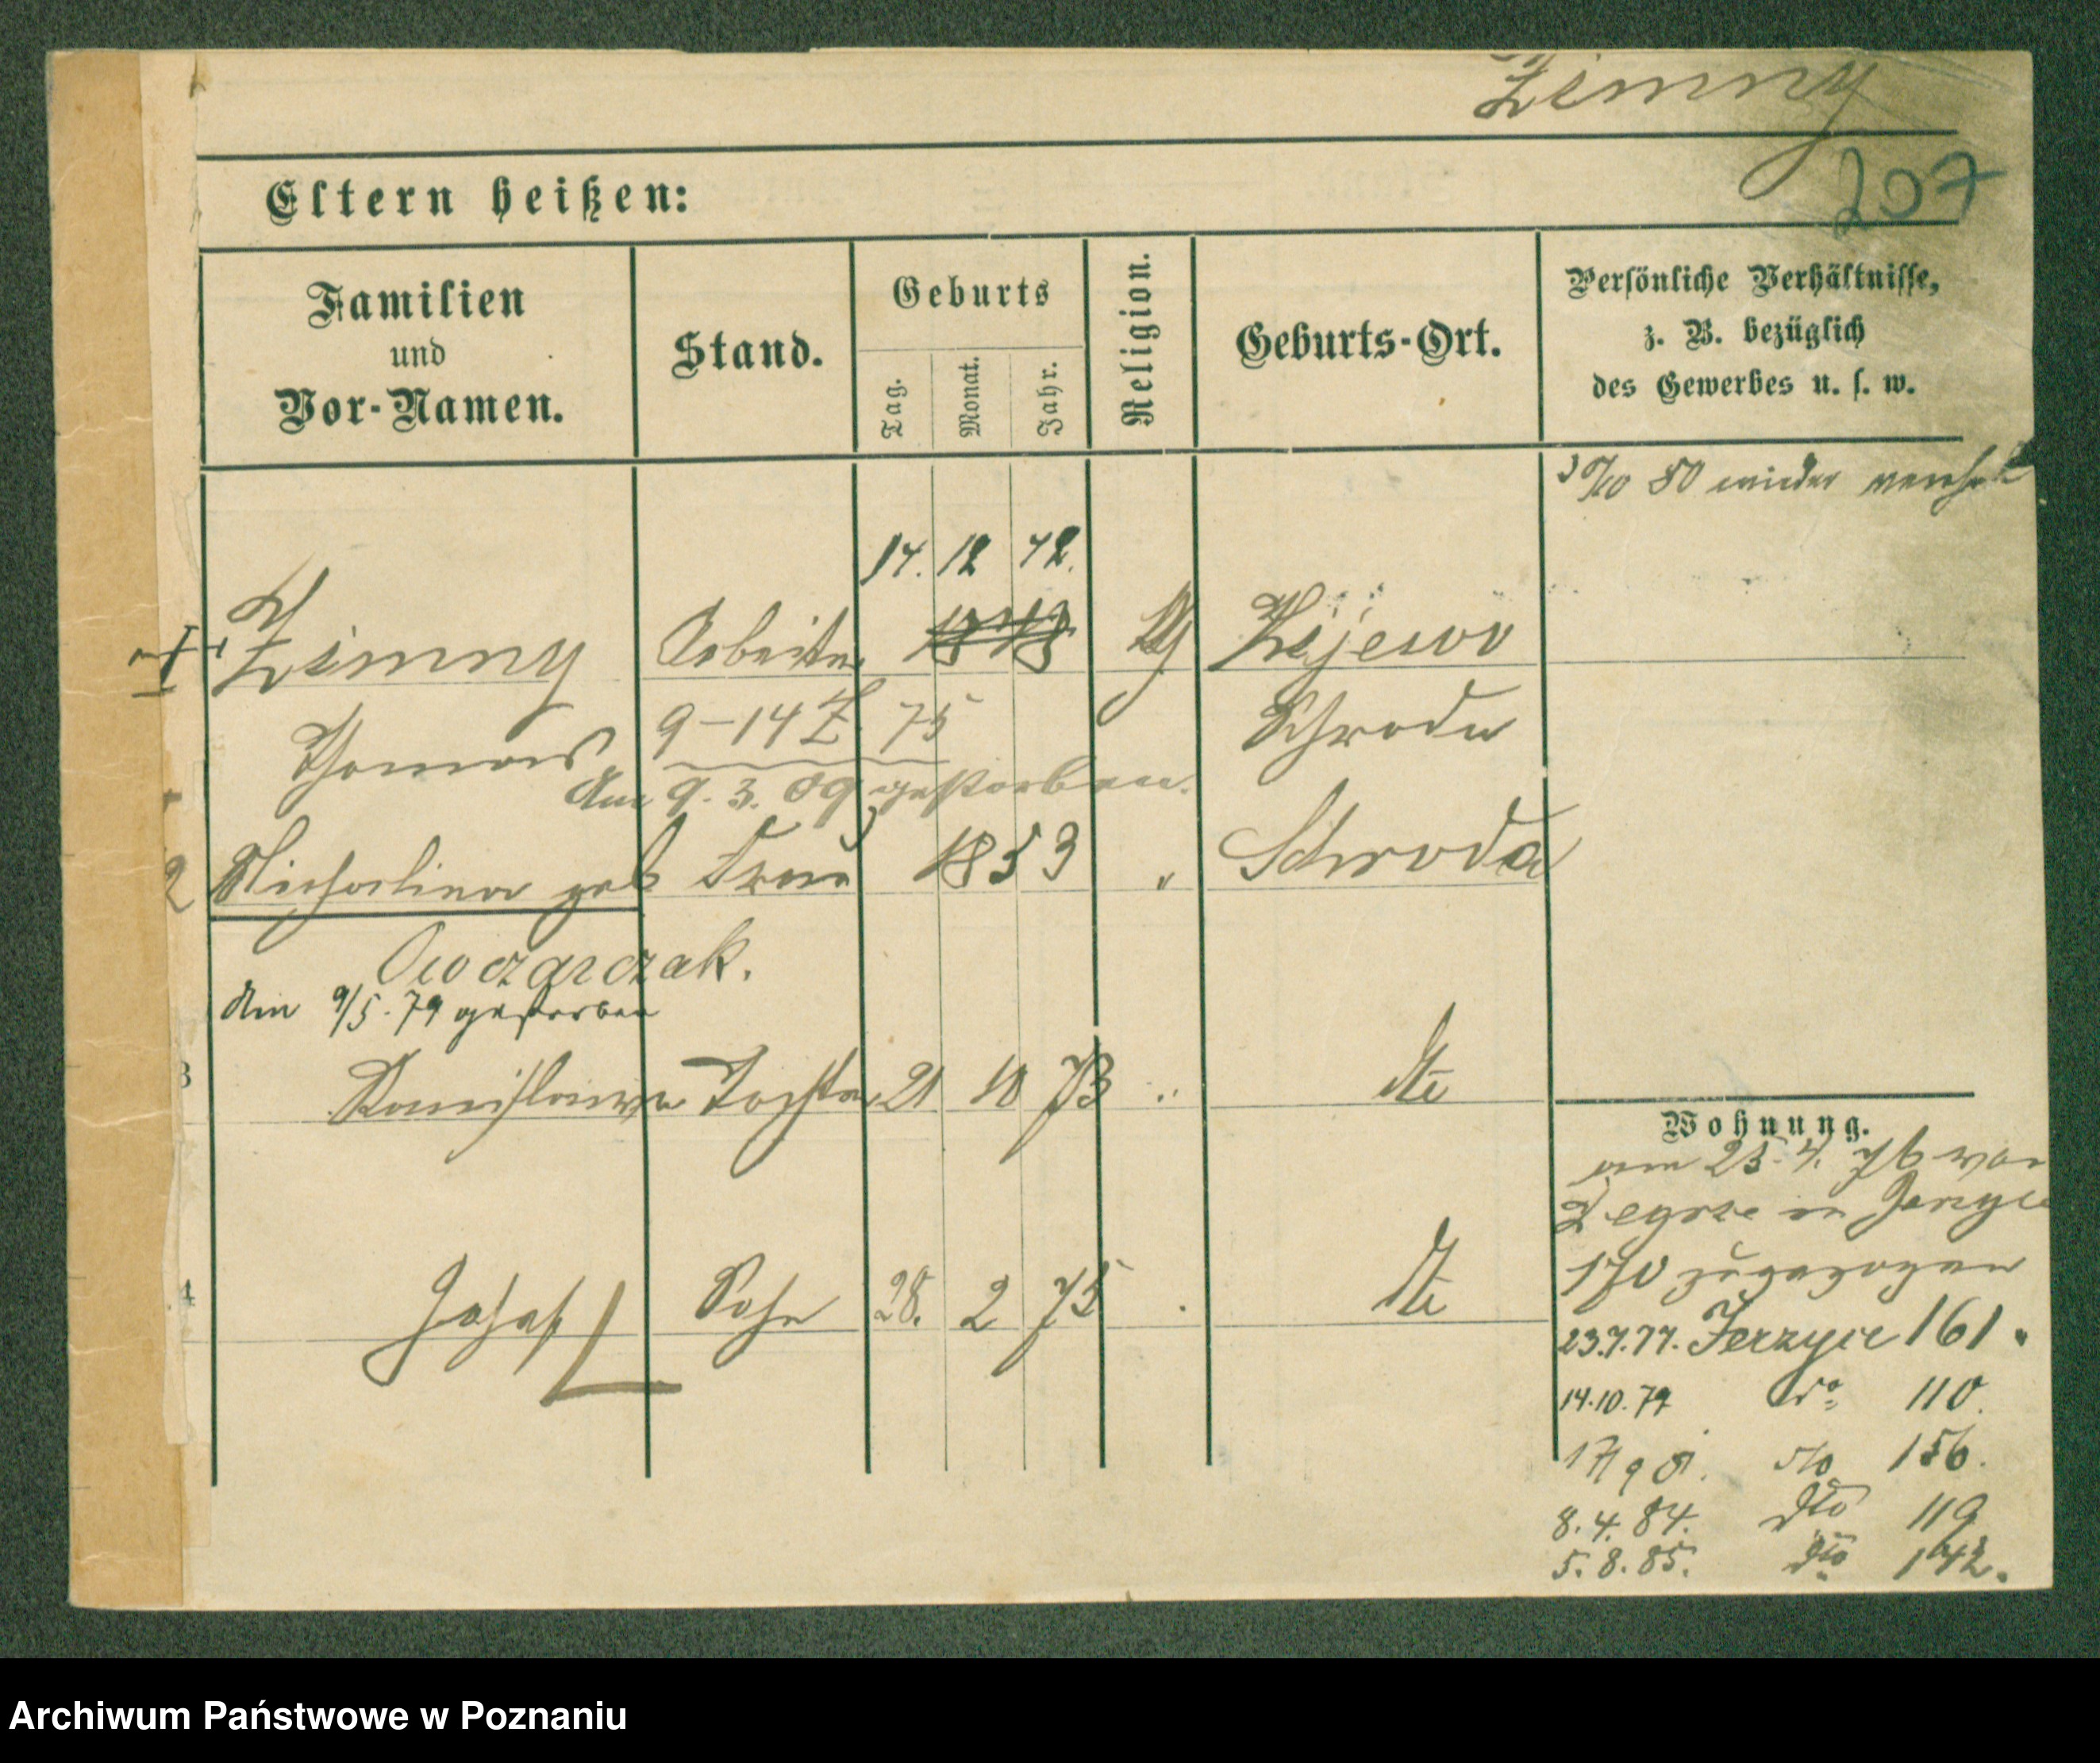 Zimny
207
Eltern heißen:
Familien und Vor-Namen.
Stand.
Geburts
Tag.
Monat.
Jahr.
Religion.
Geburts-Ort.
Persönliche Verhältnisse,
z. B. bezüglich
des Gewerbes u. s. w.
80 wieder
14. 12 42.
1 Zimny Arbeiter 1848 Kijewo
Thomas 9-14 Z. 75 Schroda
Am 9. 3. 09 gestorben.
2 Michalina geb Frau 1853 " Schroda
Owczarczak.
Am 9/5. 79 gestorben
3 Stanislawa Tochter 21 10 73 " dto
4 Josef Sohn 28. 2 75 dto
Wohnung.
am 25. 4. 76 von
Zegrze in
170 zugezogen
23.7.77. Jerzyce 161.
14.10.79 do 110.
dto 156.
8.4.84. dto 119
5.8.85. dto 142.
Archiwum Państwowe w Poznaniu